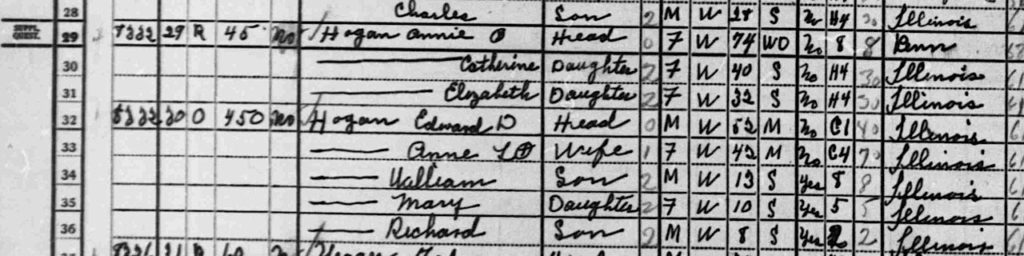 28 Charles Son 2 M W 28 S No H4 30 Illinois
SUPPL. QUEST. 29 29 R 45 No Hogan Annie Head 0 F W 74 WD No 8 8 Penn
30 Catherine Daughter 2 F W 40 S No H4 30 Illinois
31 Elizabeth Daughter 2 F W 32 S No H4 30 Illinois
32 30 O 450 No Hogan Edward D Head 0 M W 52 M No C1 40 Illinois
33 Anne L Wife 1 F W 42 M No C4 70 Illinois
34 William Son 2 M W 13 S Yes 8 8 Illinois
35 Mary Daughter 2 F W 10 S Yes 5 5 Illinois
36 Richard Son 2 M W 8 S Yes 2 2 Illinois